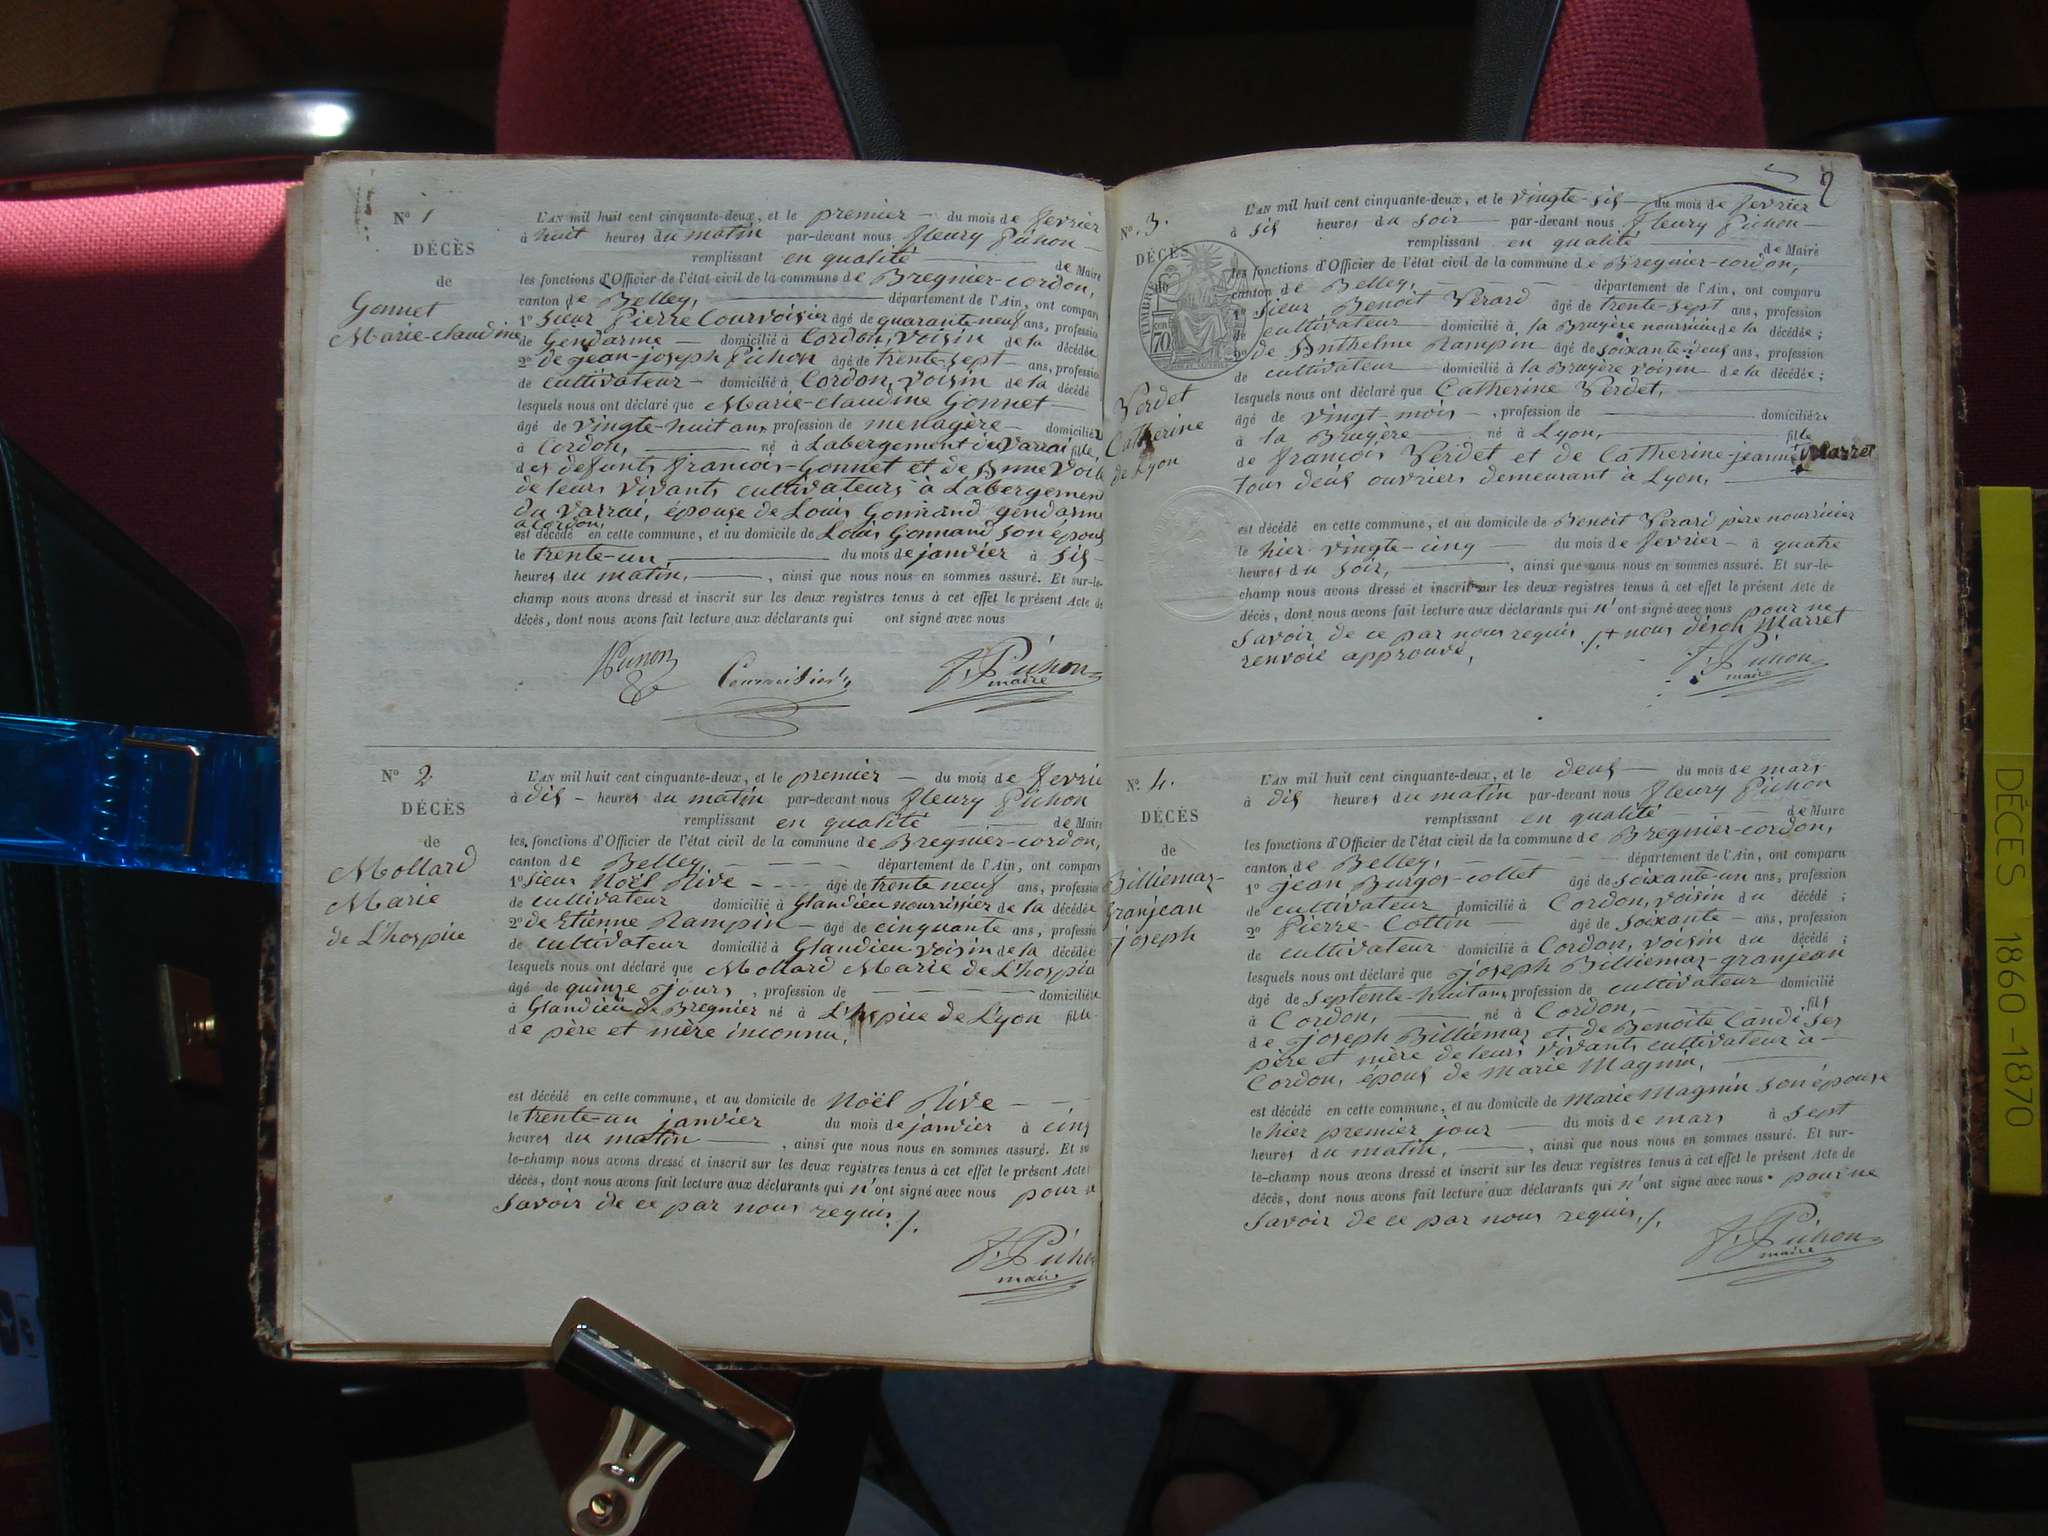 N° 1
DÉCÈS
de
Gonnet
Marie-claudine
L'AN mil huit cent cinquante-deux, et le premier — du mois de fevrier
à huit heures du matin par-devant nous fleury Pichon —
remplissant en qualité — de Maire
les fonctions d'Officier de l'état civil de la commune de Bregnier-cordon,
canton de Belley, — département de l'Ain, ont comparu
1° Sieur Pierre Courvoisier âgé de quarante-neuf ans, profession
de Gendarme — domicilié à Cordon, voisin de la décédée
2° de jean-joseph Pichon âgé de trente-sept — ans, profession
de cultivateur — domicilié à Cordon, voisin de la décédé
lesquels nous ont déclaré que Marie-claudine Gonnet —
âgé de vingte-huit ans, profession de menagère — domiciliée
à Cordon, — né à Labergement du Varrai fille,
des defunts francois-Gonnet et de Anne
de leurs vivants cultivateurs à Labergement
du Varrai, épouse de Louis Gonnand gendarme
a Cordon,
est décédé en cette commune, et au domicile de Louis Gonnand son épous
le trente-un — du mois de janvier à sis —
heures du matin, — , ainsi que nous nous en sommes assuré. Et sur-le-
champ nous avons dressé et inscrit sur les deux registres tenus à cet effet le présent Acte de
décès, dont nous avons fait lecture aux déclarants qui ont signé avec nous
Pichon
Courvoisier
f. Pichon
maire
N° 2
DÉCÈS
de
Mollard
Marie
de L'hospice
L'AN mil huit cent cinquante-deux, et le premier — du mois de fevrie
à dis — heures du matin par-devant nous fleury Pichon
remplissant en qualité — de Maire
les fonctions d'Officier de l'état civil de la commune de Bregnier-cordon,
canton de Belley, — département de l'Ain, ont comparu
1° Sieur Noël Rive — âgé de trente neuf ans, profession
de cultivateur domicilié à Glandieu nourrissier de la décédée
2° de Etienne Rampin — âgé de cinquante ans, profession
de cultivateur domicilié à Glandieu voisin de la décédée
lesquels nous ont déclaré que Mollard Marie de L'hospice
âgé de quinze jours, profession de — domiciliée
à Glandieu de Bregnier né à L'hospice de L'yon fille
de père et mère inconnu,
est décédé en cette commune, et au domicile de Noël Rive —
le trente-un janvier du mois de janvier à cinq
heures du matin — , ainsi que nous nous en sommes assuré. Et su
le-champ nous avons dressé et inscrit sur les deux registres tenus à cet effet le présent Acte
décès, dont nous avons fait lecture aux déclarants qui n'ont signé avec nous pour n
Savoir de ce par nous requis ./.
f. Picho
maire
2
N° 3.
DÉCÈS
de
TIMBRE
70
Verdet
Catherine
de Lyon
L'AN mil huit cent cinquante-deux, et le vingte-sis — du mois de fevrier
à sis heures du soir — par-devant nous fleury Pichon —
remplissant en qualité — de Maire
les fonctions d'Officier de l'état civil de la commune de Bregnier-cordon,
canton de Belley, — département de l'Ain, ont comparu
1° Sieur Benoit Verard âgé de trente-sept ans, profession
de cultivateur — domicilié à la Bruyère nourricier de la décédée ;
2° de Anthelme Rampin âgé de soixante-deus ans, profession
de cultivateur — domicilié à la Bruyère voisin de la décédée ;
lesquels nous ont déclaré que Catherine Verdet,
âgé de vingt mois — , profession de — domiciliée
à la Bruyère — né à Lyon, — fille
de francois Verdet et de Catherine-jeanne Marret
tous deus ouvriers demeurant à Lyon, —
est décédé en cette commune, et au domicile de Benoit Verard père nourricier
le hier vingte-cinq — du mois de fevrier — à quatre
heures du soir, — , ainsi que nous nous en sommes assuré. Et sur-le-
champ nous avons dressé et inscrit sur les deux registres tenus à cet effet le présent Acte de
décès, dont nous avons fait lecture aux déclarants qui n'ont signé avec nous pour ne
Savoir de ce par nous requis ./. + nous Marret
renvoie approuvé,
f. Pichon
maire
N° 4.
DÉCÈS
de
Billiemaz-
Granjean
joseph
L'AN mil huit cent cinquante-deux, et le deus — du mois de mars
à dis heures du matin par-devant nous fleury Pichon
remplissant en qualité — de Maire
les fonctions d'Officier de l'état civil de la commune de Bregnier-cordon,
canton de Belley, — département de l'Ain, ont comparu
1° jean Burgos-collet âgé de soixante-un ans, profession
de cultivateur domicilié à Cordon, voisin du décédé ;
2° Pierre Cottin — âgé de soixante — ans, profession
de cultivateur domicilié à Cordon, voisin du décédé ;
lesquels nous ont déclaré que joseph Billiemaz-granjean
âgé de septente-huit ans, profession de cultivateur domicilié
à Cordon, — né à Cordon, — fils
de joseph Billiemaz et de Benoite
père et mère de leurs vivants cultivateur à —
Cordon, épous de Marie Magnin, —
est décédé en cette commune, et au domicile de Marie Magnin son épouse
le hier premier jour — du mois de mars à sept
heures du matin, — , ainsi que nous nous en sommes assuré. Et sur-
le-champ nous avons dressé et inscrit sur les deux registres tenus à cet effet le présent Acte de
décès, dont nous avons fait lecture aux déclarants qui n'ont signé avec nous pour ne
Savoir de ce par nous requis ./.
f. Pichon
maire
DÉCES 1860-1870